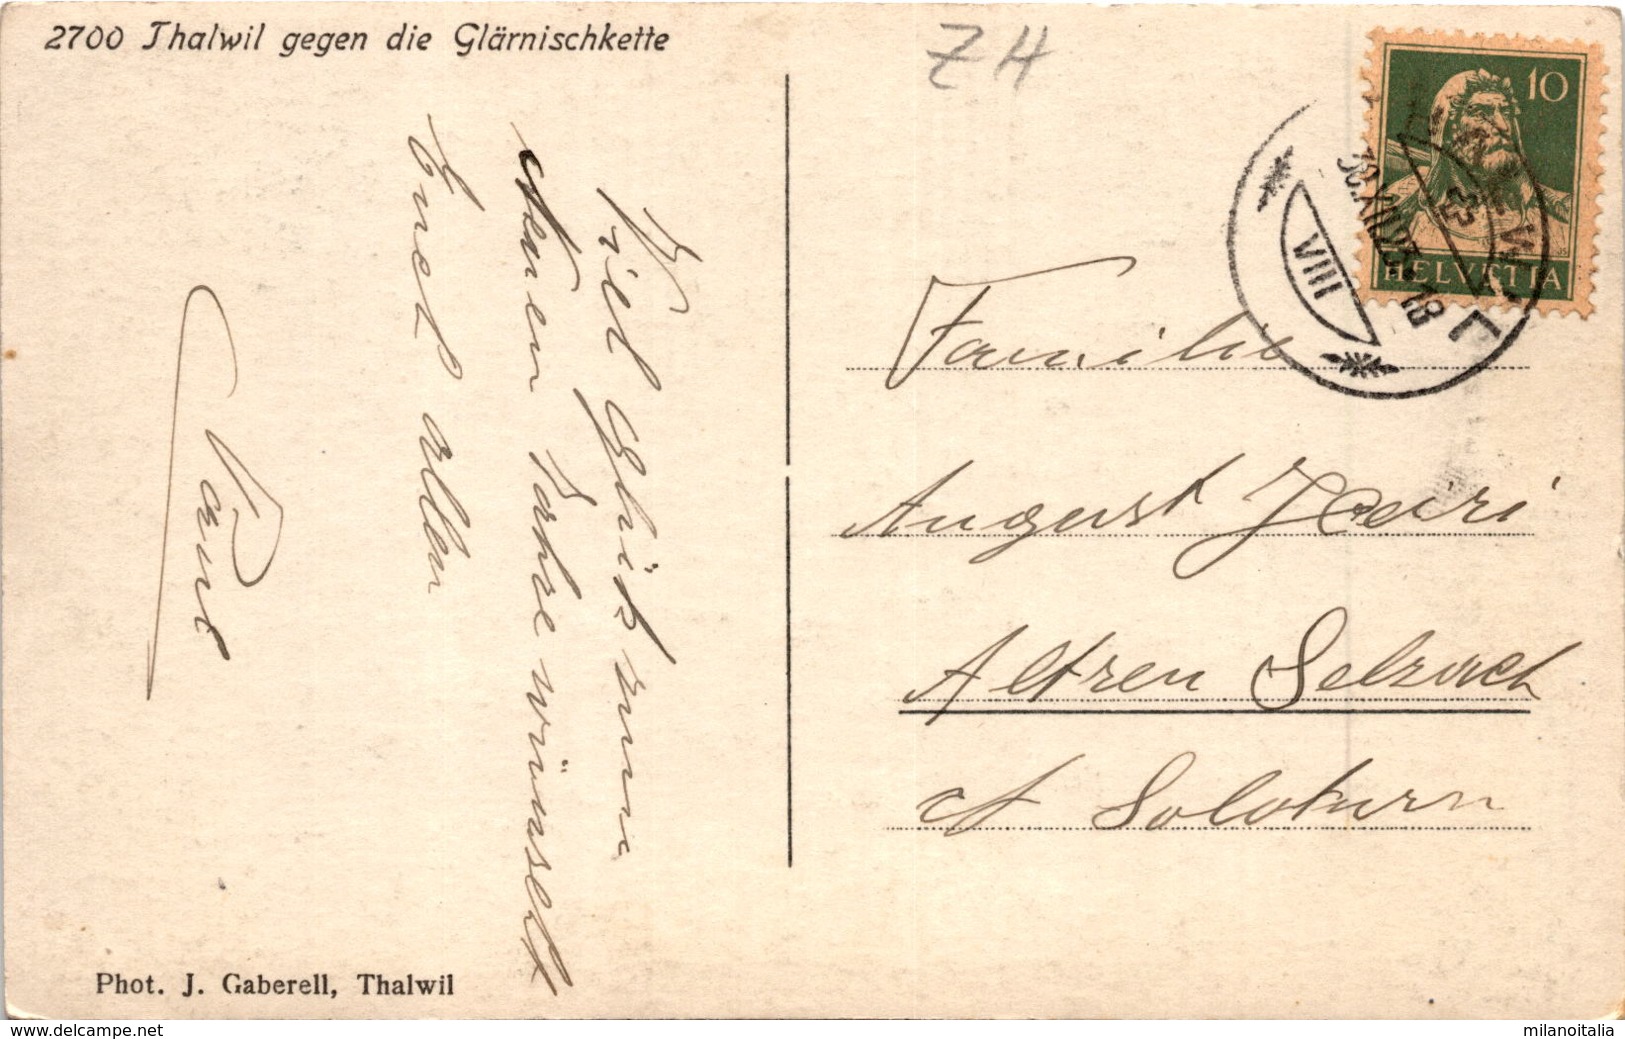 2700 Thalwil gegen die Glärnischkette
ZH
10
HELVETIA
VIII
Viel Glük zum
Neuen Jahre wünscht
Euch allen
Paul
Familie
August
Altreu Selzach
Kt Soloturn
Phot. J. Gaberell, Thalwil
www.delcampe.net
milanoitalia